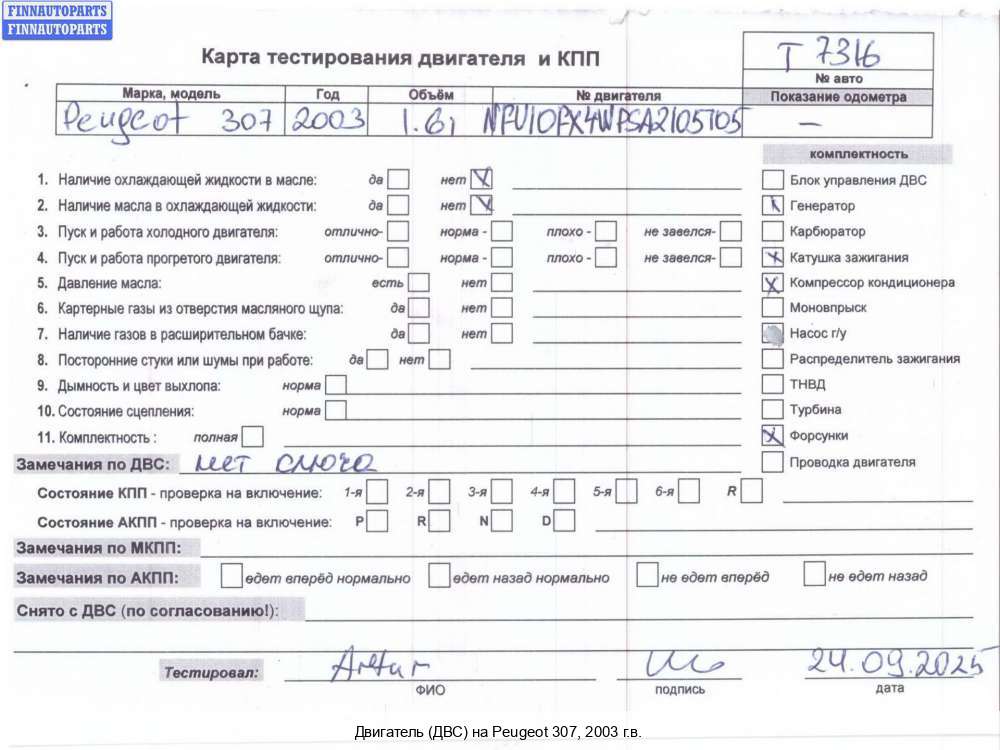 FINNAUTOPARTS
FINNAUTOPARTS
Карта тестирования двигателя и КПП
T 7316
№ авто
Марка, модель Год Объём № двигателя Показание одометра
Peugeot 307 2003 1.6i NFU10FX4WPSA2105705 —
комплектность
1. Наличие охлаждающей жидкости в масле: да нет X
Блок управления ДВС
2. Наличие масла в охлаждающей жидкости: да нет X
Генератор
3. Пуск и работа холодного двигателя: отлично- норма - плохо - не завелся-
Карбюратор
4. Пуск и работа прогретого двигателя: отлично- норма - плохо - не завелся-
Катушка зажигания
5. Давление масла: есть нет
Компрессор кондиционера
6. Картерные газы из отверстия масляного щупа: да нет
Моновпрыск
7. Наличие газов в расширительном бачке: да нет
Насос г/у
8. Посторонние стуки или шумы при работе: да нет
Распределитель зажигания
9. Дымность и цвет выхлопа: норма
ТНВД
10. Состояние сцепления: норма
Турбина
11. Комплектность : полная
Форсунки
Замечания по ДВС:
нет
Проводка двигателя
Состояние КПП - проверка на включение: 1-я 2-я 3-я 4-я 5-я 6-я R
Состояние АКПП - проверка на включение: P R N D
Замечания по МКПП:
Замечания по АКПП: едет вперёд нормально едет назад нормально не едет вперёд не едет назад
Снято с ДВС (по согласованию!):
Тестировал: Artur 24.09.2025
ФИО подпись дата
Двигатель (ДВС) на Peugeot 307, 2003 г.в.